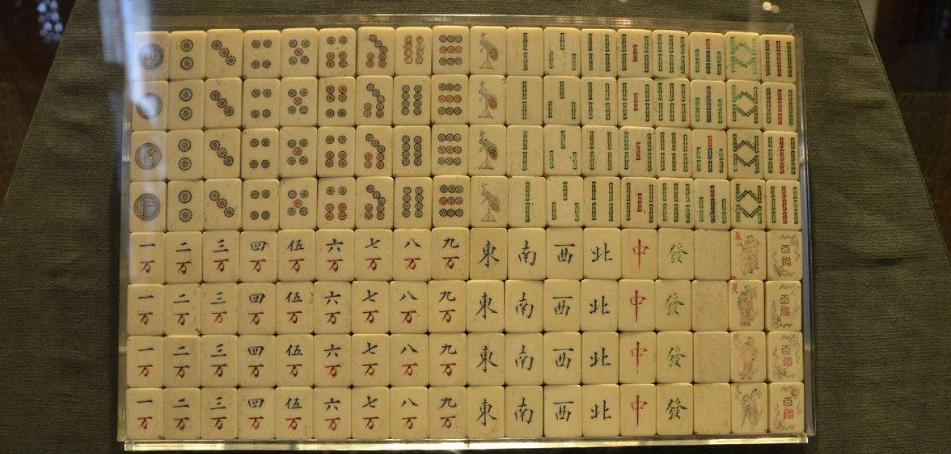 一万 二万 三万 四万 伍万 六万 七万 八万 九万 東 南 西 北 中 發 百搭
一万 二万 三万 四万 伍万 六万 七万 八万 九万 東 南 西 北 中 發 百搭
一万 二万 三万 四万 伍万 六万 七万 八万 九万 東 南 西 北 中 發 百搭
一万 二万 三万 四万 伍万 六万 七万 八万 九万 東 南 西 北 中 發 百搭